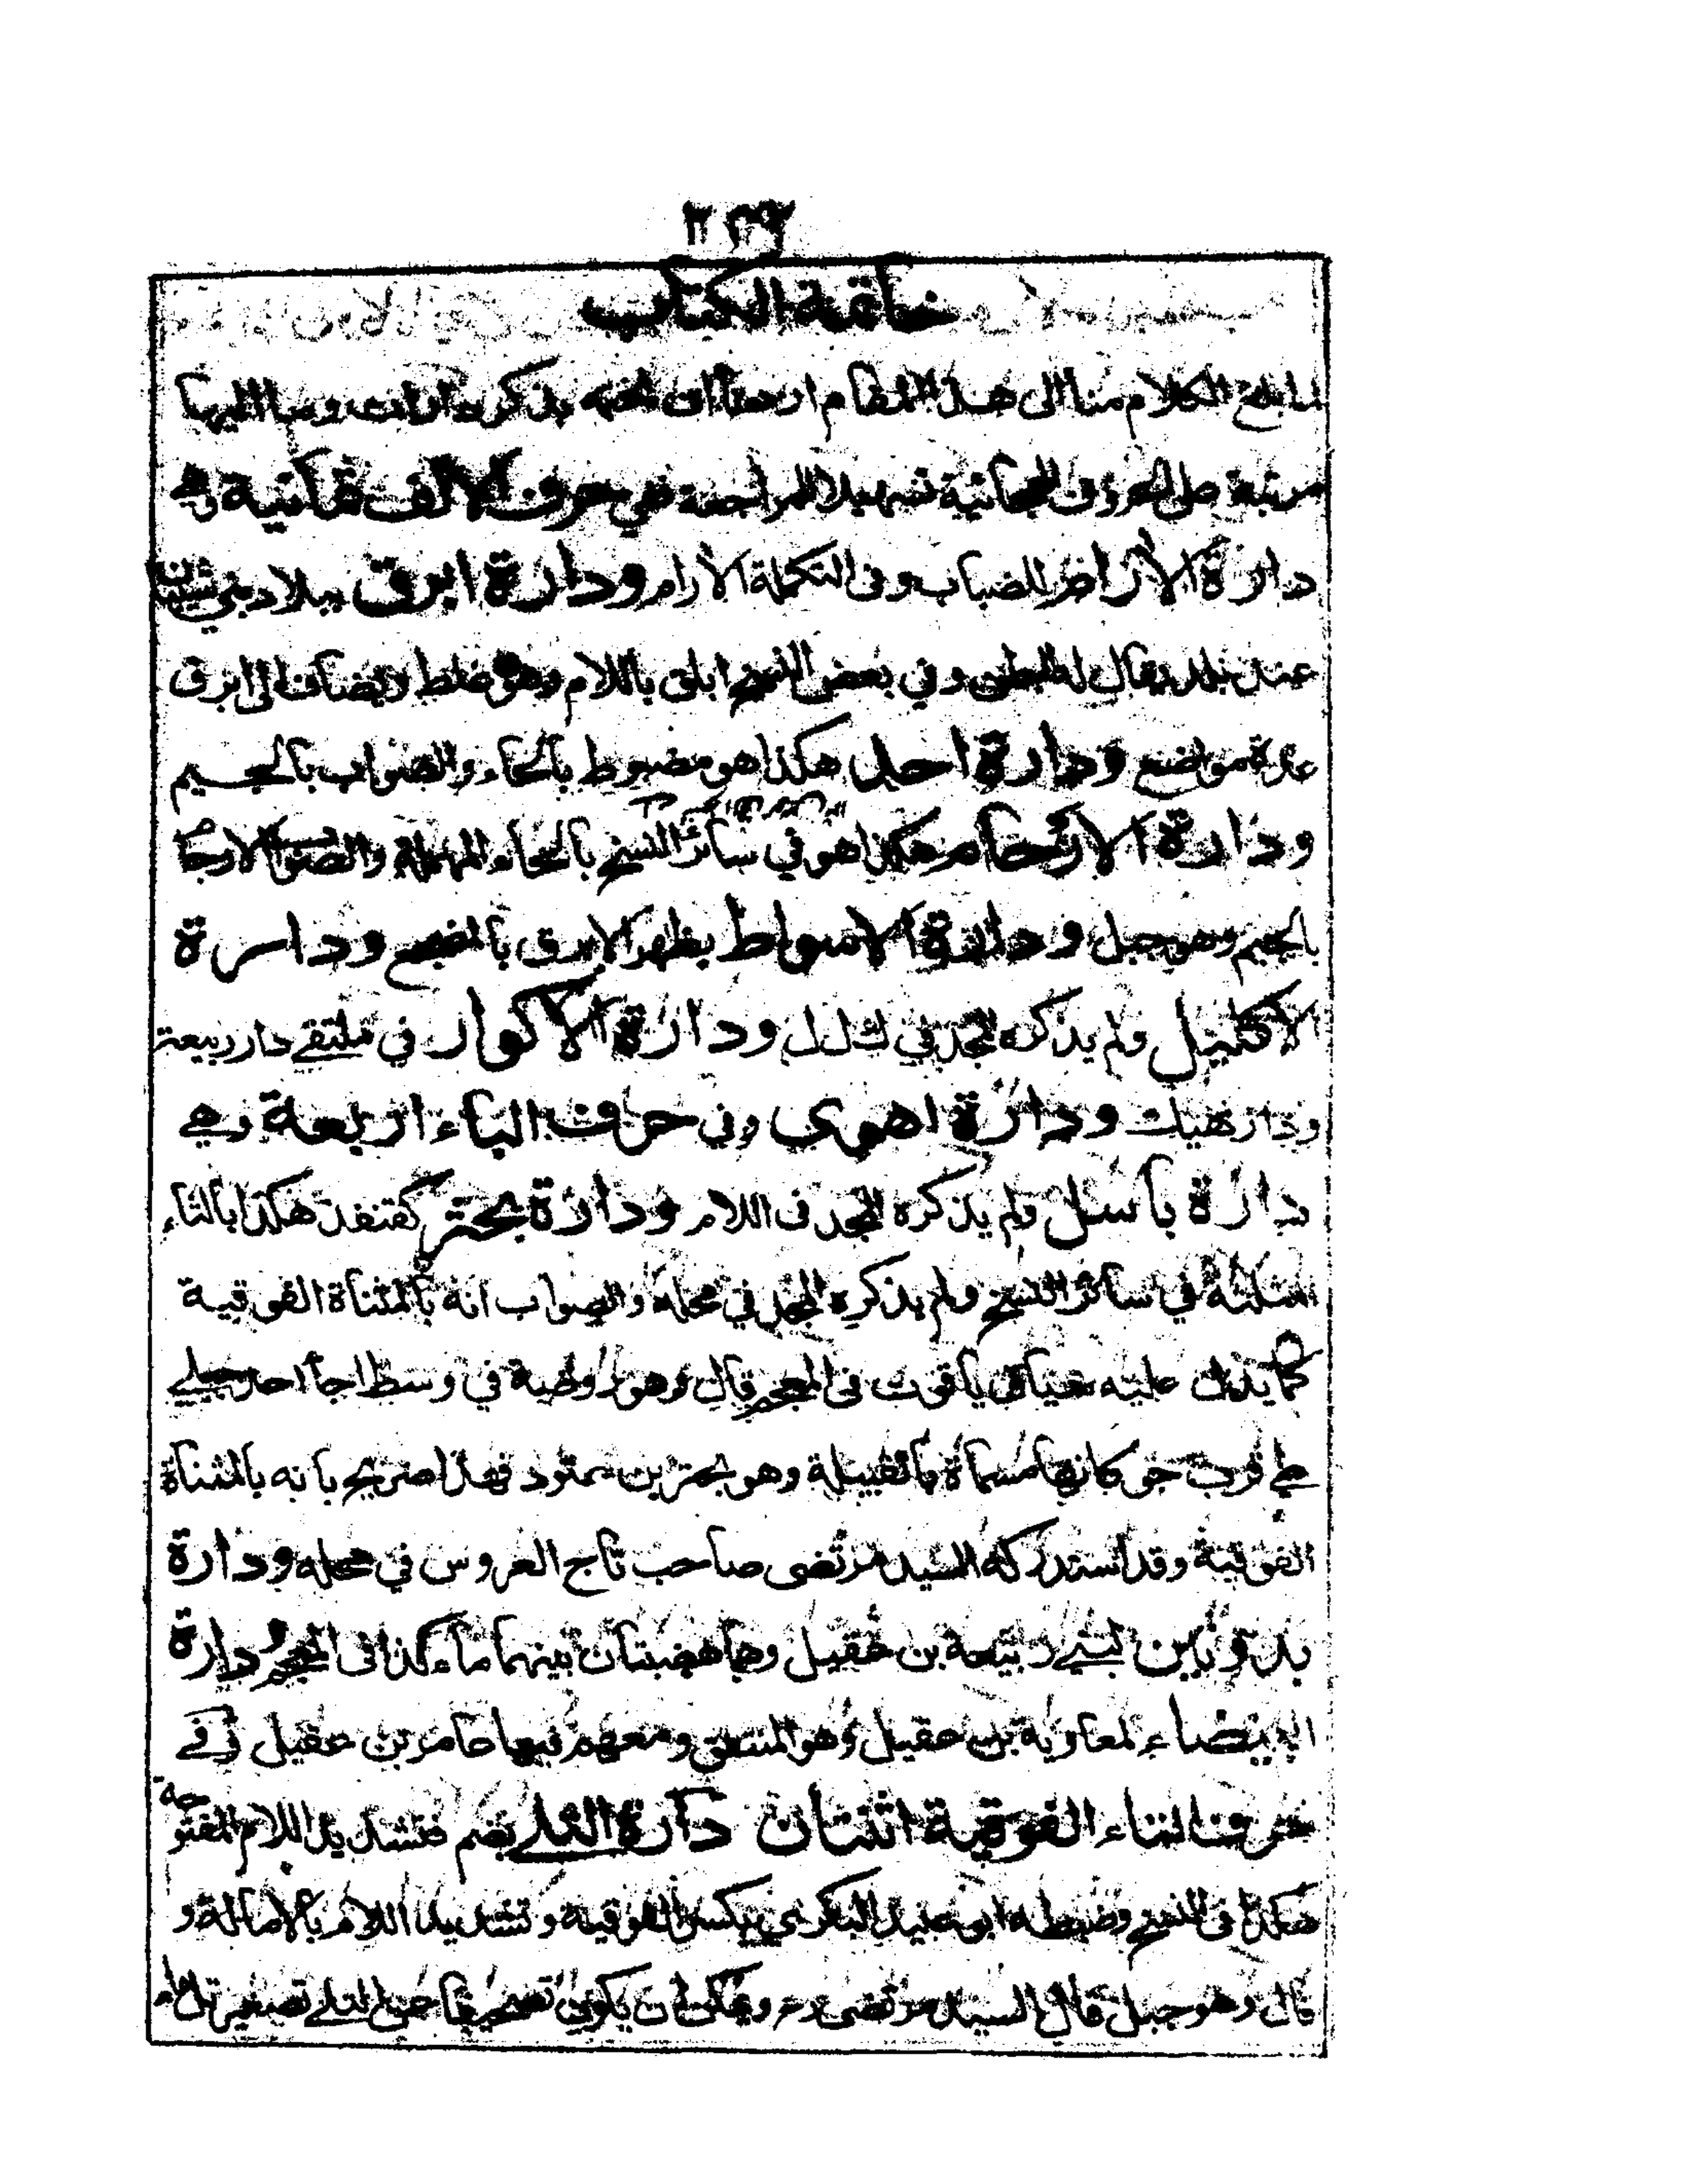 خاتمة الكتاب
لما بلغ الكلام منا الى هذا المقام اردنا ان نختمه بذكر دارات وما اليها
مرتبة على الحروف الهجائية تسهيلا للمراجعة ففي حرف الالف ثمانية وهي
دارة الأرآم للضباب وفى التكملة الأرام ودارة ابرق ببلاد بني شيبان
عند بلد يقال له البطن وفي بعض النسخ ابلق باللام وهو غلط ويضاف الى ابرق
عدة مواضع ودارة احد هكذا هو مضبوط بالحاء والصواب بالجيم
ودارة الارحام هكذا هو في سائر النسخ بالحاء المهملة والصواب الارجام
بالجيم وهو جبل ودارة الاسواط بظهر الابرق بالمضجع ودارة
الاكليل ولم يذكره المجد في ك ل ل ودارة الأكوار في ملتقى دار ربيعة
ودار نهيك ودارة اهوى وفي حرف الباء اربعة وهي
دارة باسل ولم يذكره المجد فى اللام ودارة بحثر كقنفذ هكذا بالثاء
المثلثة في سائر النسخ ولم يذكره المجد في محله والصواب انه بالمثناة الفوقية
كما يدل عليه سياق ياقوت فى المعجم قال وهو روضة في وسط اجأ احد جبلي
طي قرب جو كانها مسماة بالقبيلة وهو بحتر بن عتود فهذا صريح بانه بالمثناة
الفوقية وقد استدركه السيد مرتضى صاحب تاج العروس في محله ودارة
بدوتين لبني ربيعة بن عقيل وهما هضبتان بينهما ماء كذا فى المعجم ودارة
البيضاء لمعاوية بن عقيل وهو المنتفق ومعهم فيها عامر بن عقيل وفي
حرف التاء الفوقية اثنتان دارة التلى بضم فتشديد اللام المفتوحة
هكذا فى النسخ وضبطه ابو عبيد البكري بكسر الفوقية وتشديد اللام بالامالة و
قال وهو جبل قال السيد مرتضى رح ويمكن ان يكون تصحيفا عن التلي تصغير تل ماء